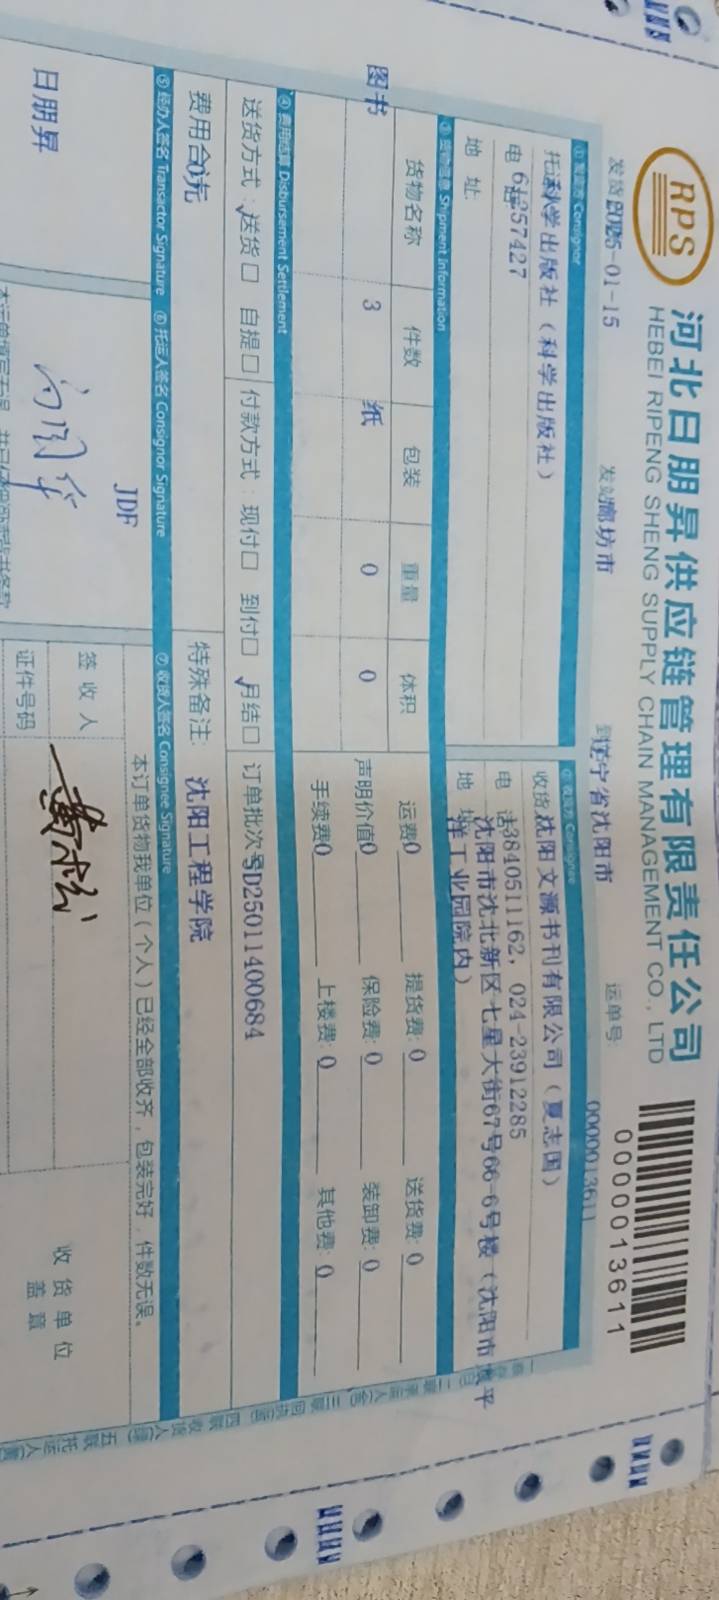 RPS
河北日朋昇供应链管理有限责任公司
HEBEI RIPENG SHENG SUPPLY CHAIN MANAGEMENT CO., LTD
0000013611
发货 2025-01-15
发站 廊坊市
到 辽宁省沈阳市
运单号:
0000013611
① 发货方 Consignor
② 收货方 Consignee
科学出版社（科学出版社）
收货 沈阳文源书刊有限公司（夏志国）
电 64257427
电 话 13840511162, 024-23912285
地 址:
地 址 沈阳市沈北新区七星大街67号66-6号楼（沈阳市 平
洋工业园院内）
③ 货物信息 Shipment Information
货物名称 件数 包装 重量 体积
运费 0 提货费: 0 送货费: 0
图书 3 纸 0 0
声明价值 0 保险费: 0 装卸费: 0
手续费 0 上楼费: 0 其他费: 0
④ 费用结算 Disbursement Settlement
送货方式: √送货□ 自提□ 付款方式: 现付□ 到付□ √月结□ 订单批次号 SD25011400684
费用合 0元
特殊备注: 沈阳工程学院
⑤ 经办人签名 Transactor Signature
⑥ 托运人签名 Consignor Signature
⑦ 收货人签名 Consignee Signature
本订单货物我单位（个人）已经全部收齐，包装完好，件数无误。
日朋昇
JDF
签收人
证件号码
收货单位
盖章